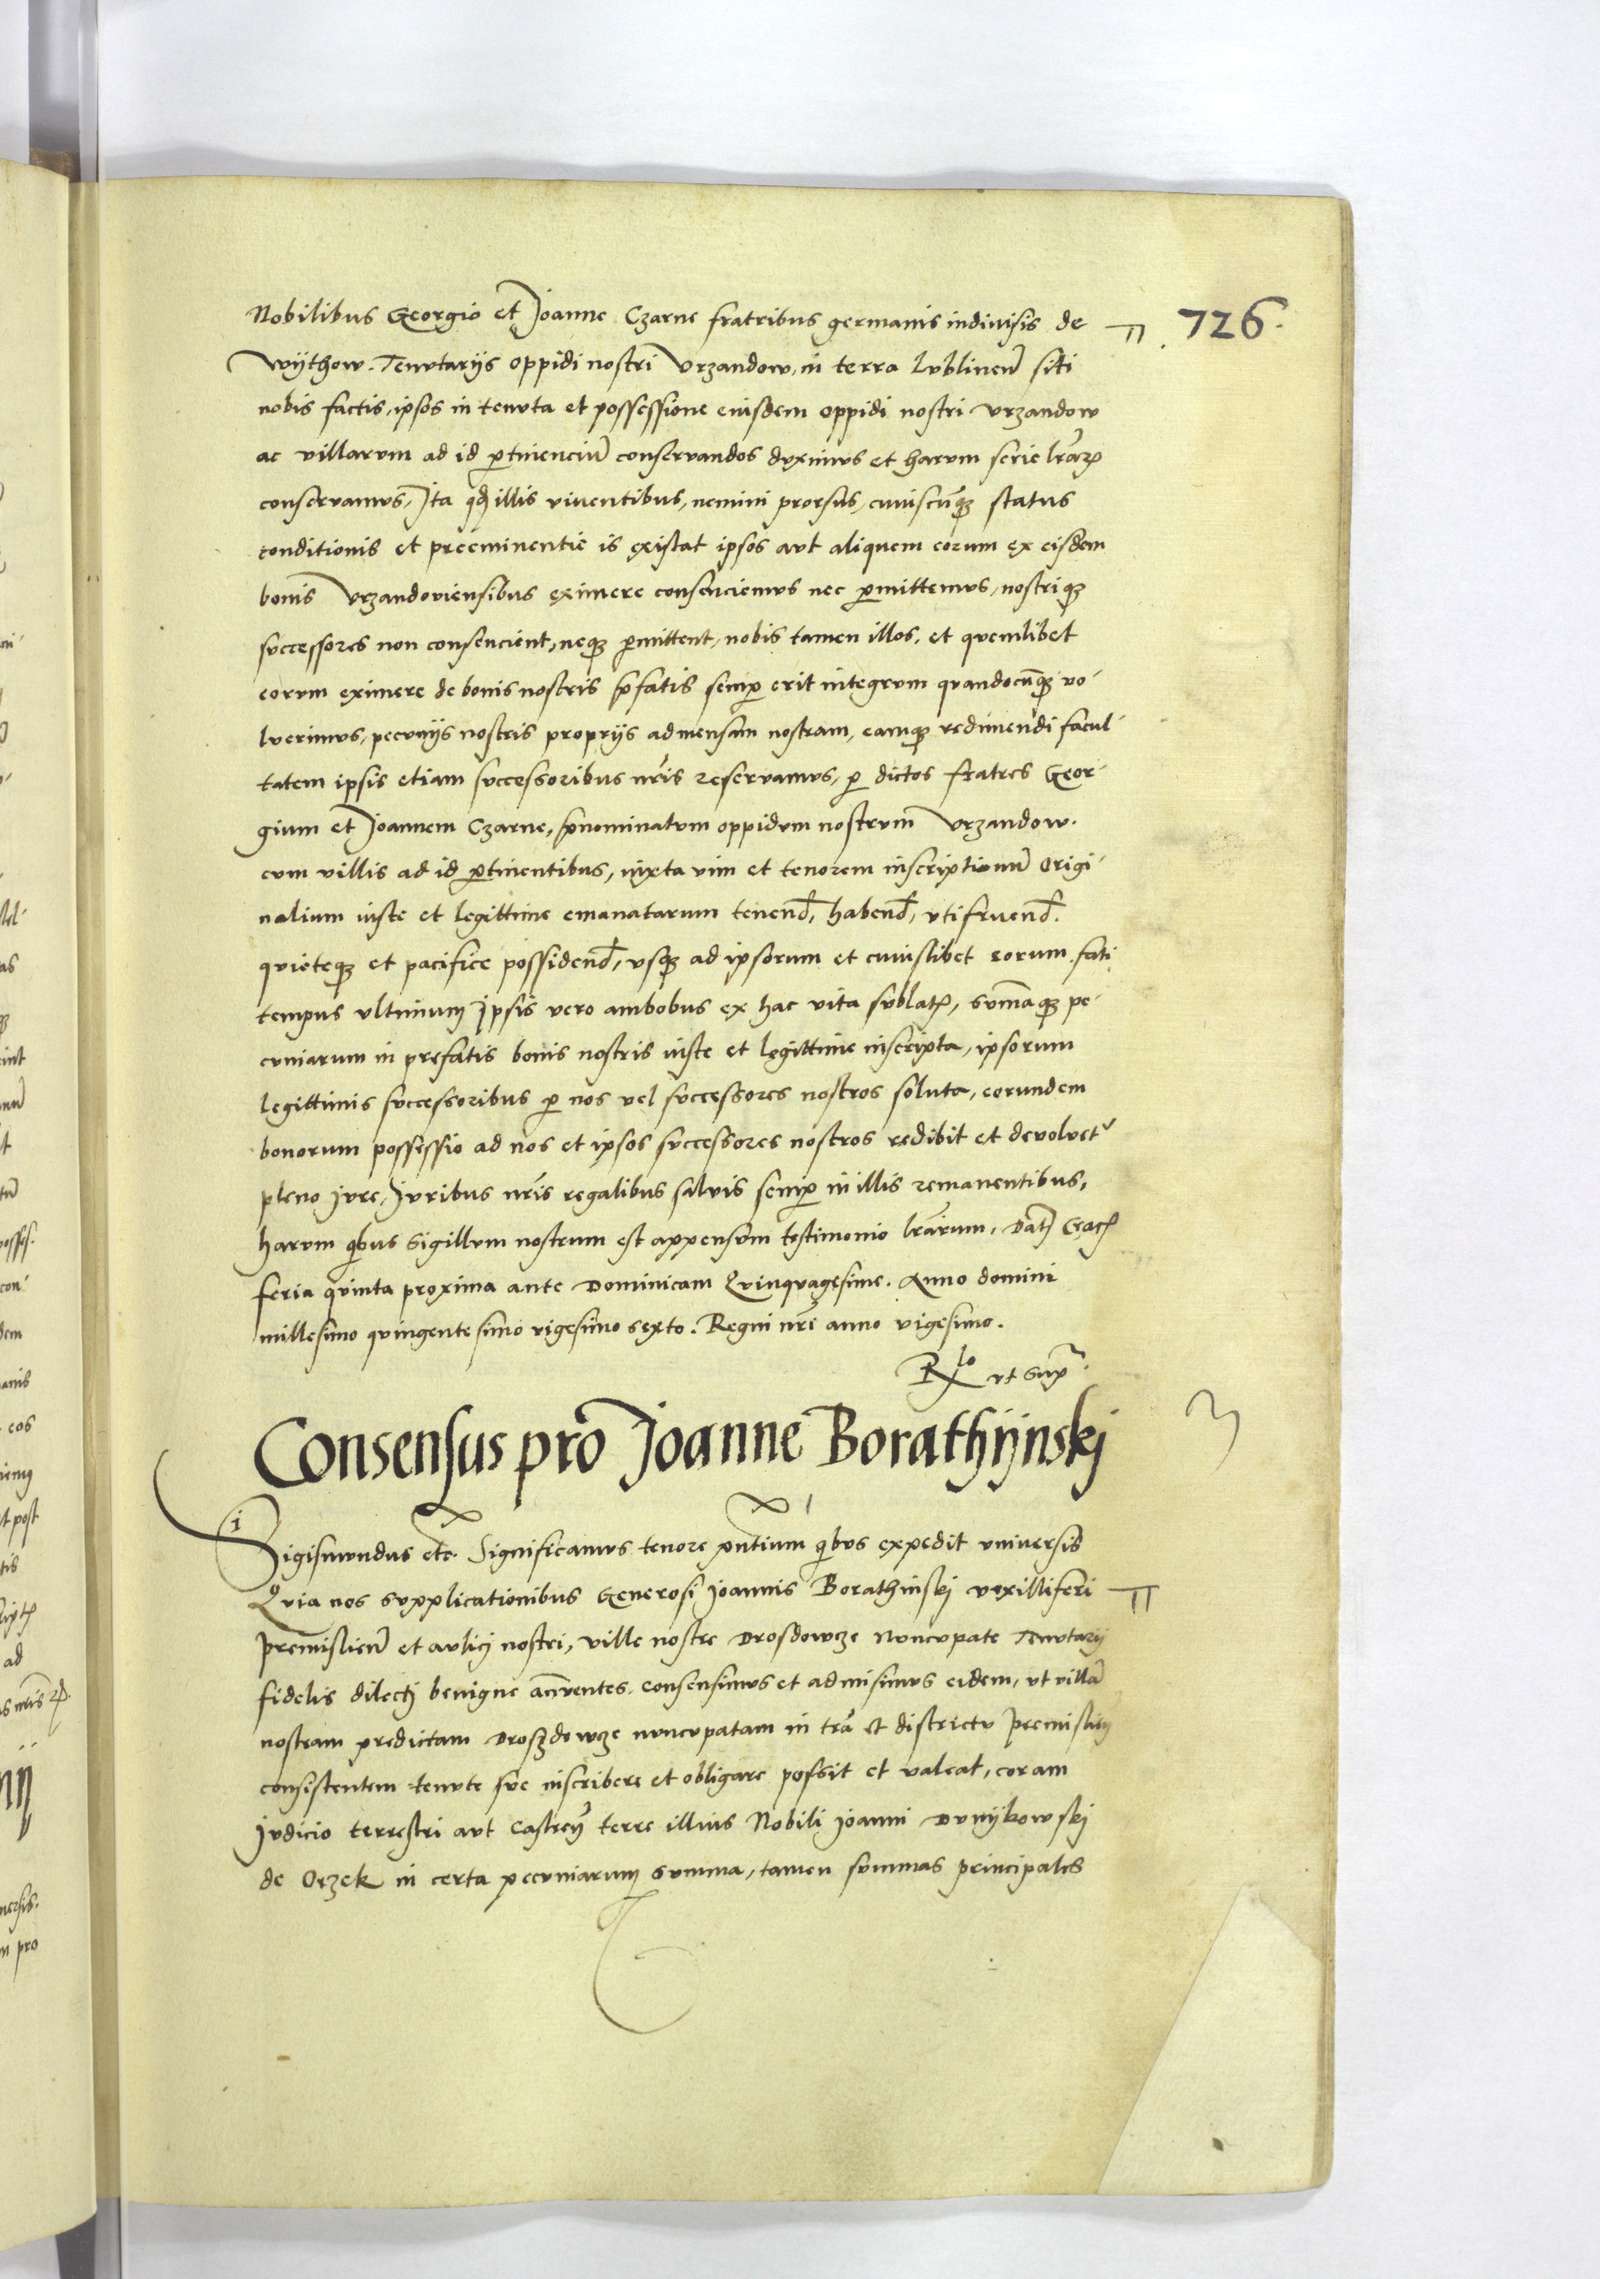 Nobilibus Georgio et Joanne Czarne fratribus germanis indiuisis de
726.
Wythow. Tenutarijs oppidi nostri Vrzandow, in terra Lublinen̄ siti
nobis factis, ipsos in tenuta et possessione eiusdem oppidi nostri Vrzandow
ac villarum ad id ꝑtinenciū conseruandos duximus et harum serie lr̄arꝝ
conseruamus, Ita qđ illis viuentibus, nemini prorsus, cuiuscūqꝫ status
conditionis et preeminentie is existat ipsos aut aliquem eorum ex eisdem
bonis Vrzandouiensibus eximere consenciemus nec ꝑmittemus, nostriqꝫ
successores non consencient, neqꝫ ꝑmittent, nobis tamen illos, et quemlibet
eorum eximere de bonis nostris p̄fatis semꝑ erit integrum quandocūqꝫ vo-
luerimus, pecunijs nostris proprijs ad mensam nostram, eamqꝫ redimendi facul-
tatem ipsis etiam successoribus nr̄is reseruamus, ꝑ dictos fratres Geor-
gium et Joannem Czarne, p̄nominatum oppidum nostrum Vrzandow.
cum villis ad id ꝑtinentibus, iuxta vim et tenorem inscriptionū origi-
nalium iuste et legittime emanatarum tenend̄, habend̄, vtifruend̄.
quieteqꝫ et pacifice possidend̄, vsqꝫ ad ipsorum et cuiuslibet eorum fati
tempus vltimum Ipsis vero ambobus ex hac vita sublatꝭ, sum̄aqꝫ pe-
cuniarum in prefatis bonis nostris iuste et legittime inscripta, ipsorum
legittimis successoribus ꝑ nos vel successores nostros soluta, eorundem
bonorum possessio ad nos et ipsos successores nostros redibit et deuoluet᷑
pleno iure, Iuribus nr̄is regalibus saluis semꝑ in illis remanentibus,
harum qibus sigillum nostrum est appensum testimonio lr̄arum. Dat̄ Cracꝭ
feria quinta proxima ante Dominicam Quinquagesime. Anno domini
millesimo quingentesimo vigesimo sexto. Regni nr̄i anno vigesimo.
Rlo vt supꝛ
Consensus pro Joanne Borathijnskj
Sigismundus etc. Significamus tenore pn̄tium qibus expedit vniuersis
Quia nos supplicationibus Generosi Joannis Borathinskj vexilliferi
Premislien̄ et aulicj nostri, ville nostre Drosdowcze nuncupate Tenutarij
fidelis dilectj benigne an̄uentes, consensimus et admisimus eidem, vt villā
nostram predictam Droszdowcze nuncupatam in tr̄a et districtu Premislien̄
consistentem tenute sue inscribere et obligare possit et valeat, coram
Judicio terrestri aut Castren̄ terre illius Nobili Joanni Dunijkowskj
de Orzek in certa pecuniarum summa, tamen summas principales